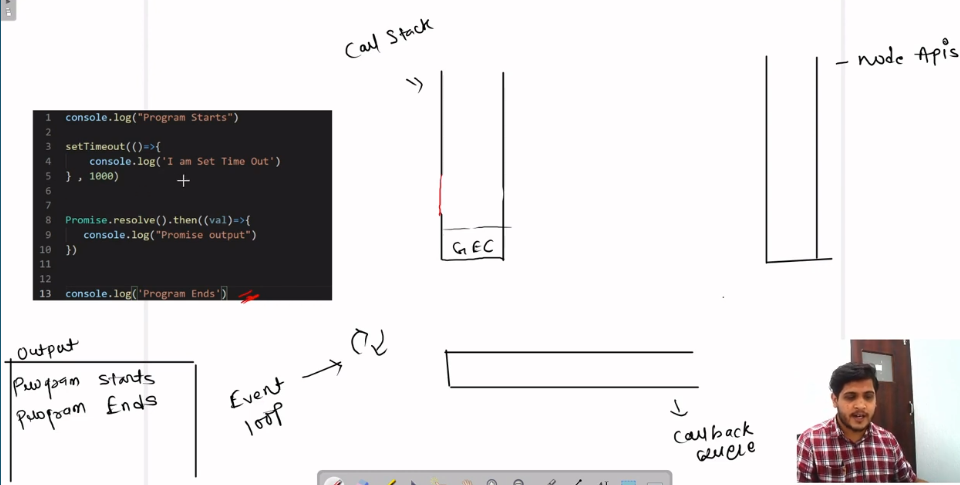 Call Stack
- node Apis
1 console.log("Program Starts")
2
3 setTimeout(()=>{
4 console.log('I am Set Time Out')
5 } , 1000)
6
7
8 Promise.resolve().then((val)=>{
9 console.log("Promise output")
10 })
11
12
13 console.log('Program Ends')
GEC
Output
Program starts
Program Ends
Event
loop
Callback
Queue